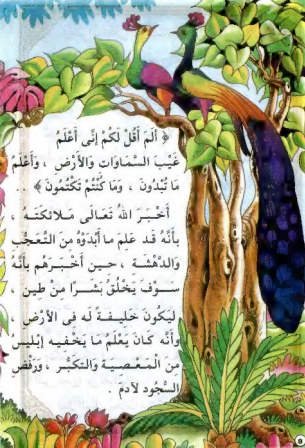 ﴿ أَلَمْ أَقُلْ لَكُمْ إِنِّى أَعْلَمُ
غَيْبَ السَّمَاوَاتِ وَالأَرْضِ ، وَأَعْلَمُ
مَا تُبْدُونَ ، وَمَا كُنْتُمْ تَكْتُمُونَ ﴾ ..
أَخْبَرَ اللهُ تَعَالَى مَلَائِكَتَهُ ،
بِأَنَّهُ قَدْ عَلِمَ مَا أَبْدَوْهُ مِنَ التَّعَجُّبِ
وَالدَّهْشَةِ ، حِينَ أَخْبَرَهُمْ بِأَنَّهُ
سَوْفَ يَخْلُقُ بَشَرًا مِنْ طِينٍ ،
لِيَكُونَ خَلِيفَةً لَهُ فِى الأَرْضِ ،
وَأَنَّهُ كَانَ يَعْلَمُ مَا يُخْفِيهِ إِبْلِيسُ
مِنَ الْمَعْصِيَةِ وَالتَّكَبُّرِ ، وَرَفْضِ
السُّجُودِ لآدَمَ .